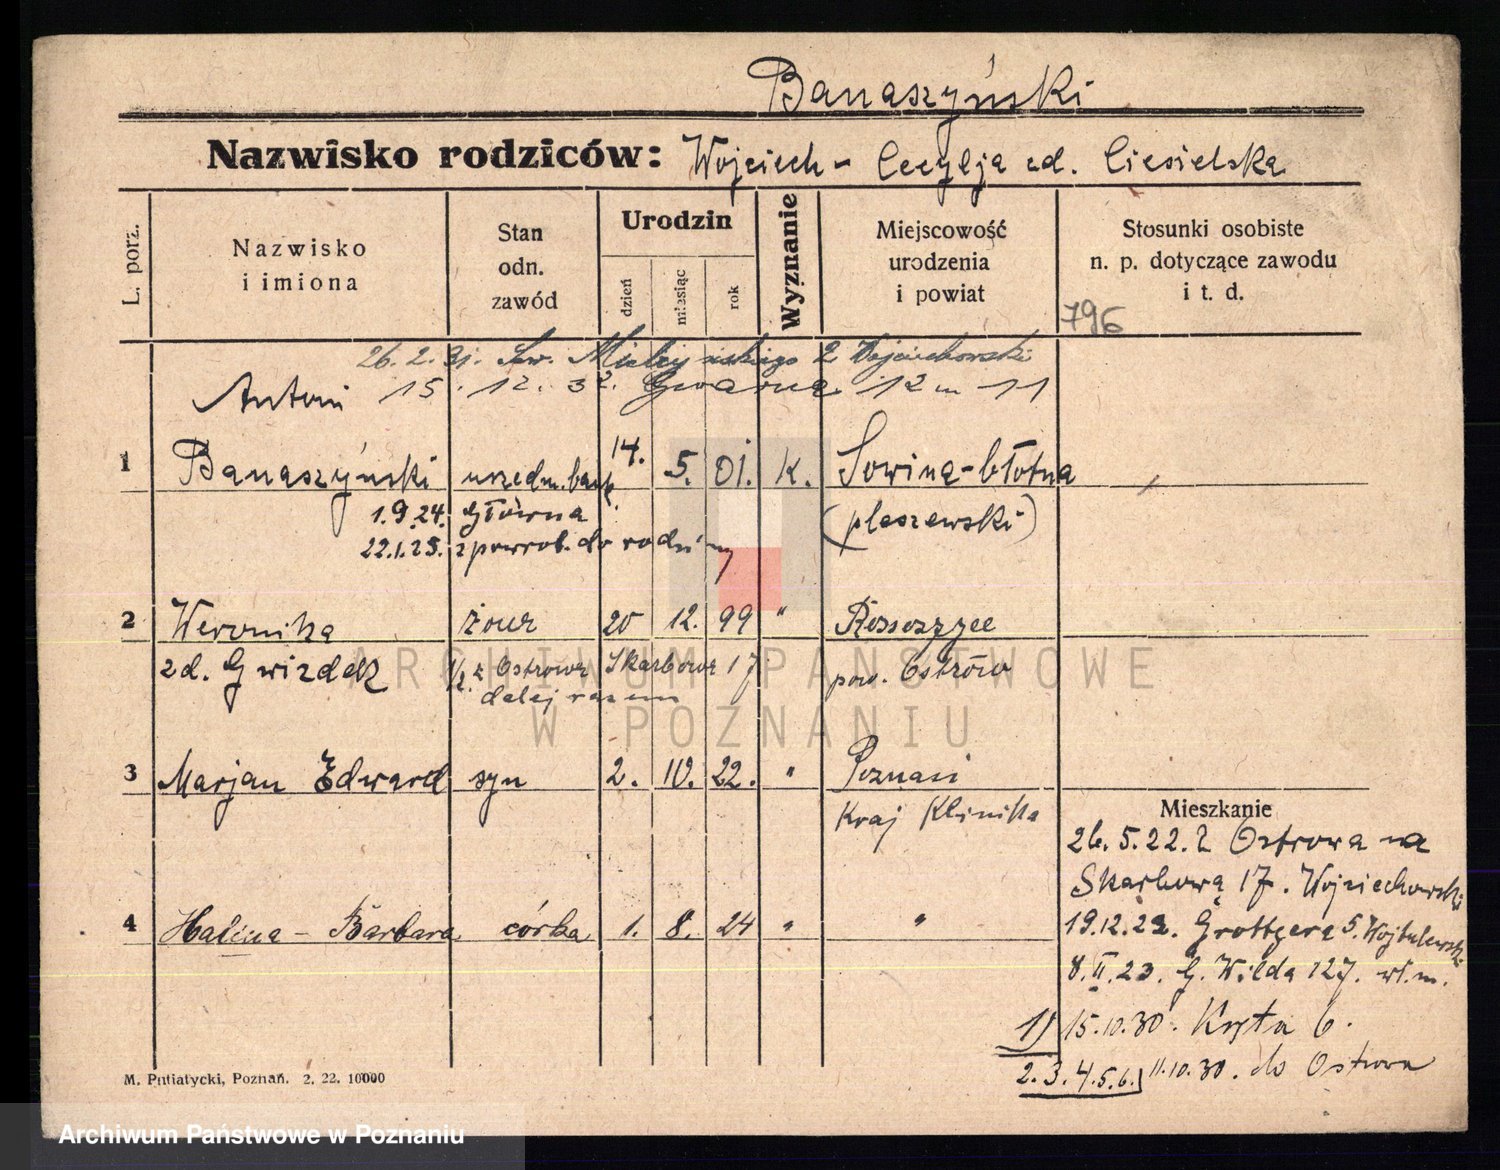 Banaszyński
Nazwisko rodziców: Wojciech - Cecylja zd. Ciesielska
L. porz.
Nazwisko i imiona
Stan odn. zawód
Urodzin
dzień
miesiąc
rok
Wyznanie
Miejscowość urodzenia i powiat
Stosunki osobiste n. p. dotyczące zawodu i t. d.
796
26. 2. 31. Sew. Mielżyńskiego 2 Wojciechowski
Antoni 15. 12. 32. Gwarna 12 m 11
1 Banaszyński urzędn. bank. 14. 5. 01. k. Sowina-błotna
1.9.24. Główna (pleszewski)
22.1.25. z powrot. do rodziny
2 Weronika żona 20 12. 99 " Rososzyce
zd. Gwizdek 1/2 z Ostrowa Skarbowa 17 pow. Ostrów
dalej razem
3 Marjan Edward syn 2. IV. 22. " Poznań
Kraj Klinika
Mieszkanie
26. 5. 22. z Ostrowa na
Skarbową 17. Wojciechowski
4 Halina - Barbara córka 1. 8. 24 " "
19.12.22. Grottgera 5. Wojtulewski
8. II. 23. G. Wilda 127. wł. m.
1) 15.10.30. Kręta 6.
2. 3. 4. 5. 6.) 11.10.30. do Ostrowa
M. Putiatycki, Poznań. 2. 22. 10000
ARCHIWUM PAŃSTWOWE
W POZNANIU
Archiwum Państwowe w Poznaniu